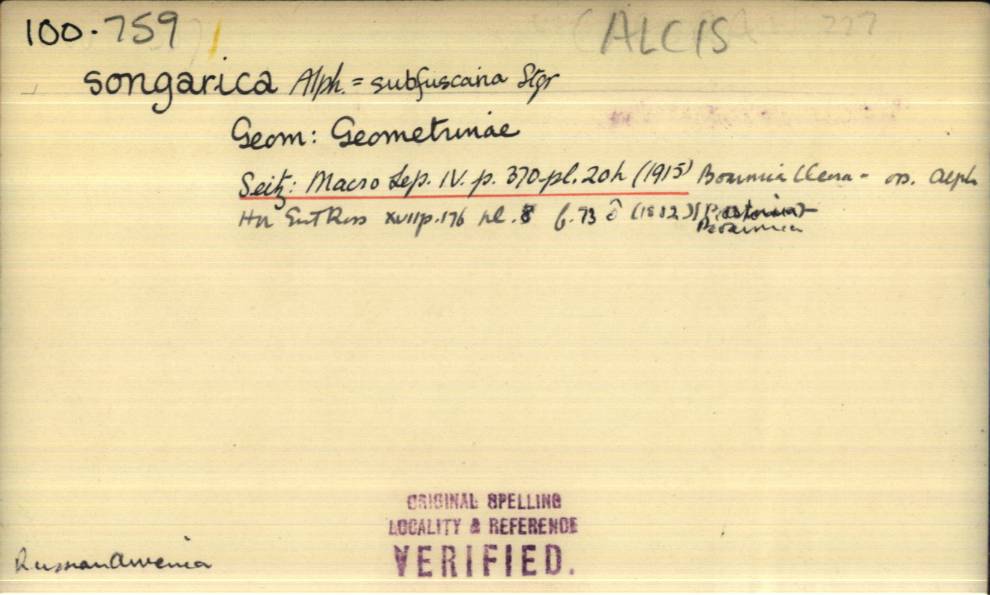 100.759 ALCIS 227
songarica Alph. = subfuscaria Stgr
Geom: Geometrinae
Seitz: Macro Lep. IV. p. 370-pl. 20h (1915) Boarmia
Hor Ent Ross XVII p. 176 pl. 8 f. 73 ♂ (1882)
Boarmia
ORIGINAL SPELLING
LOCALITY & REFERENCE
VERIFIED.
Russian Armenia